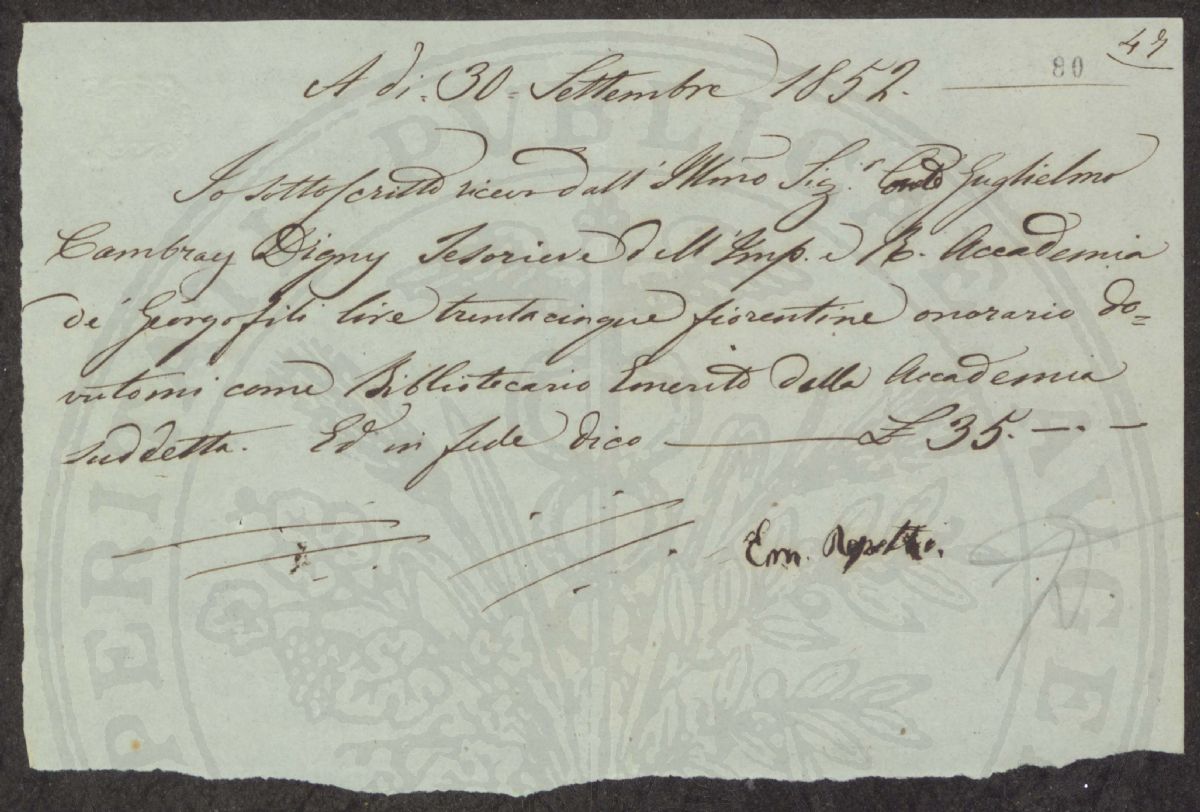 47
80
A dì 30 = Settembre 1852.
Io sottoscritto ricevo dall' Illmo Sig.r Conte Guglielmo
Cambray Digny Tesoriere dell' Imp. e R. Accademia
de' Georgofili lire trentacinque fiorentine onorario do=
vutomi come Bibliotecario Emerito della Accademia
suddetta. Ed in fede dico ——— £ 35. —. —
Em. Repetti.
PERIALI PVBLICE AVGE